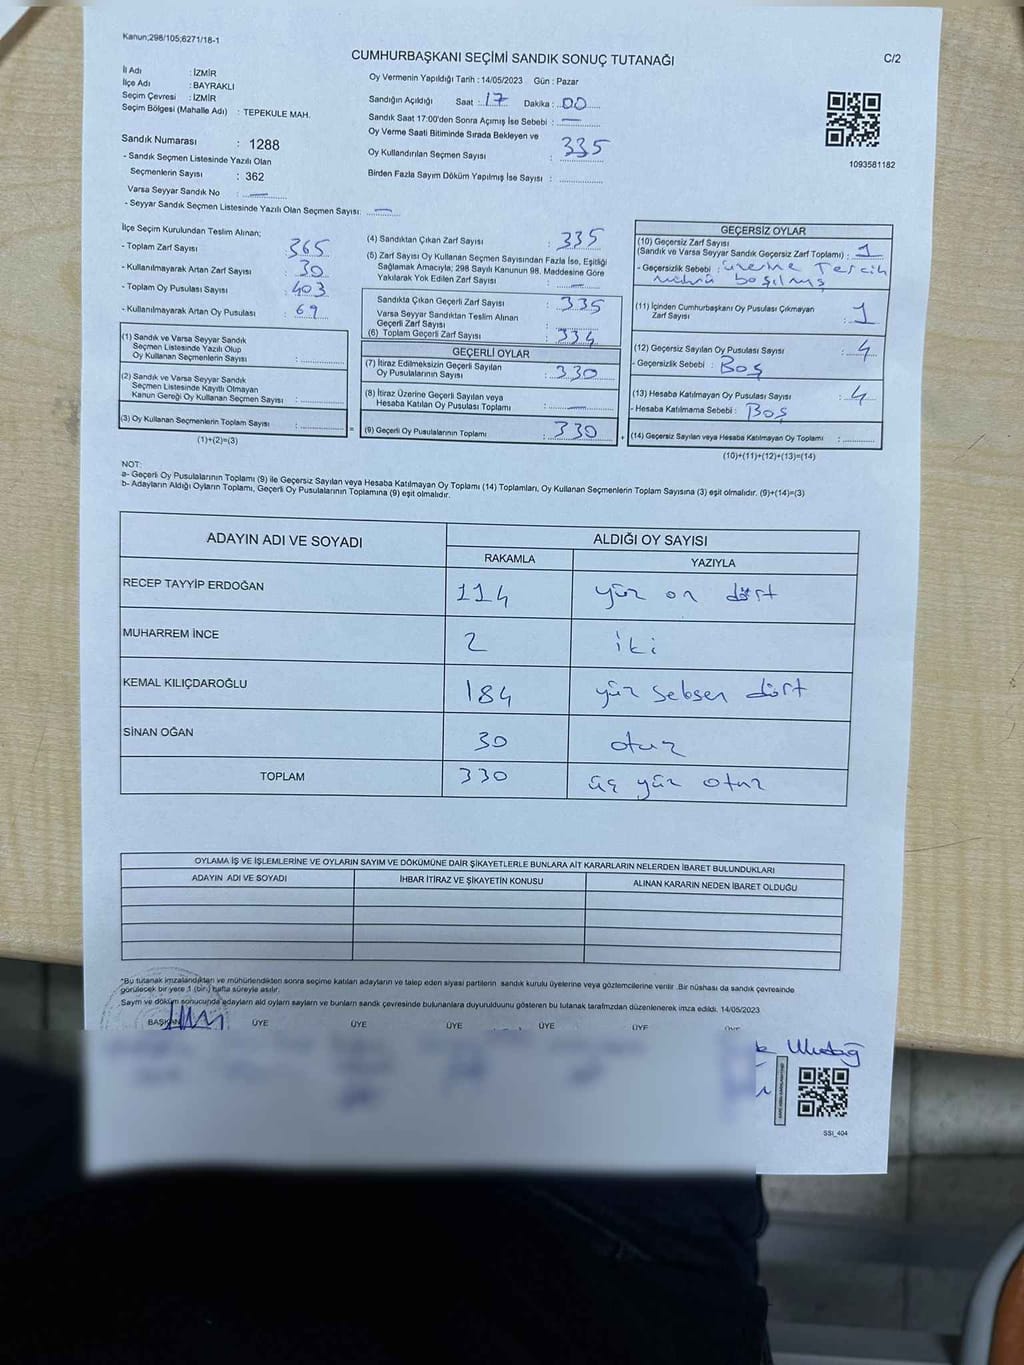 Kanun;298/105;6271/18-1
CUMHURBAŞKANI SEÇİMİ SANDIK SONUÇ TUTANAĞI
C/2
İl Adı : İZMİR
İlçe Adı : BAYRAKLI
Seçim Çevresi : İZMİR
Seçim Bölgesi (Mahalle Adı) : TEPEKULE MAH.
Sandık Numarası : 1288
- Sandık Seçmen Listesinde Yazılı Olan
Seçmenlerin Sayısı : 362
Varsa Seyyar Sandık No : —
- Seyyar Sandık Seçmen Listesinde Yazılı Olan Seçmen Sayısı: —
Oy Vermenin Yapıldığı Tarih : 14/05/2023 Gün : Pazar
Sandığın Açıldığı Saat : 17 Dakika : 00
Sandık Saat 17:00'den Sonra Açımış İse Sebebi : —
Oy Verme Saati Bitiminde Sırada Bekleyen ve
Oy Kullandırılan Seçmen Sayısı : 335
Birden Fazla Sayım Döküm Yapılmış İse Sayısı :
1093581182
İlçe Seçim Kurulundan Teslim Alınan;
- Toplam Zarf Sayısı : 365
- Kullanılmayarak Artan Zarf Sayısı : 30
- Toplam Oy Pusulası Sayısı : 403
- Kullanılmayarak Artan Oy Pusulası : 69
(1) Sandık ve Varsa Seyyar Sandık
Seçmen Listesinde Yazılı Olup
Oy Kullanan Seçmenlerin Sayısı :
(2) Sandık ve Varsa Seyyar Sandık
Seçmen Listesinde Kayıtlı Olmayan
Kanun Gereği Oy Kullanan Seçmen Sayısı :
(3) Oy Kullanan Seçmenlerin Toplam Sayısı :
(1)+(2)=(3)
(4) Sandıktan Çıkan Zarf Sayısı : 335
(5) Zarf Sayısı Oy Kullanan Seçmen Sayısından Fazla İse, Eşitliği
Sağlamak Amacıyla; 298 Sayılı Kanunun 98. Maddesine Göre
Yakılarak Yok Edilen Zarf Sayısı : —
Sandıkta Çıkan Geçerli Zarf Sayısı : 335
Varsa Seyyar Sandıktan Teslim Alınan
Geçerli Zarf Sayısı :
(6) Toplam Geçerli Zarf Sayısı : 334
GEÇERLİ OYLAR
(7) İtiraz Edilmeksizin Geçerli Sayılan
Oy Pusulalarının Sayısı : 330
(8) İtiraz Üzerine Geçerli Sayılan veya
Hesaba Katılan Oy Pusulası Toplamı : —
= (9) Geçerli Oy Pusulalarının Toplamı : 330 +
GEÇERSİZ OYLAR
(10) Geçersiz Zarf Sayısı
(Sandık ve Varsa Seyyar Sandık Geçersiz Zarf Toplamı) : 1
- Geçersizlik Sebebi : üzerine Tercih
mührü basılmış
(11) İçinden Cumhurbaşkanı Oy Pusulası Çıkmayan
Zarf Sayısı : 1
(12) Geçersiz Sayılan Oy Pusulası Sayısı : 4
- Geçersizlik Sebebi : Boş
(13) Hesaba Katılmayan Oy Pusulası Sayısı : 4
- Hesaba Katılmama Sebebi : Boş
(14) Geçersiz Sayılan veya Hesaba Katılmayan Oy Toplamı :
(10)+(11)+(12)+(13)=(14)
NOT:
a- Geçerli Oy Pusulalarının Toplamı (9) ile Geçersiz Sayılan veya Hesaba Katılmayan Oy Toplamı (14) Toplamları, Oy Kullanan Seçmenlerin Toplam Sayısına (3) eşit olmalıdır. (9)+(14)=(3)
b- Adayların Aldığı Oyların Toplamı, Geçerli Oy Pusulalarının Toplamına (9) eşit olmalıdır.
ADAYIN ADI VE SOYADI
ALDIĞI OY SAYISI
RAKAMLA YAZIYLA
RECEP TAYYİP ERDOĞAN 114 yüz on dört
MUHARREM İNCE 2 iki
KEMAL KILIÇDAROĞLU 184 yüz seksen dört
SİNAN OĞAN 30 otuz
TOPLAM 330 üç yüz otuz
OYLAMA İŞ VE İŞLEMLERİNE VE OYLARIN SAYIM VE DÖKÜMÜNE DAİR ŞİKAYETLERLE BUNLARA AİT KARARLARIN NELERDEN İBARET BULUNDUKLARI
ADAYIN ADI VE SOYADI İHBAR İTİRAZ VE ŞİKAYETİN KONUSU ALINAN KARARIN NEDEN İBARET OLDUĞU
*Bu tutanak imzalandıktan ve mühürlendikten sonra seçime katılan adayların ve talep eden siyasi partilerin sandık kurulu üyelerine veya gözlemcilerine verilir .Bir nüshası da sandık çevresinde
görülecek bir yere 1 (bir) hafta süreyle asılır.
Sayım ve döküm sonucunda adayların aldı oyların sayıları ve bunların sandık çevresinde bulunanlara duyurulduğunu gösteren bu tutanak tarafımızdan düzenlenerek imza edildi. 14/05/2023
BAŞKAN ÜYE ÜYE ÜYE ÜYE ÜYE ÜYE
Uludağ
SSI_404